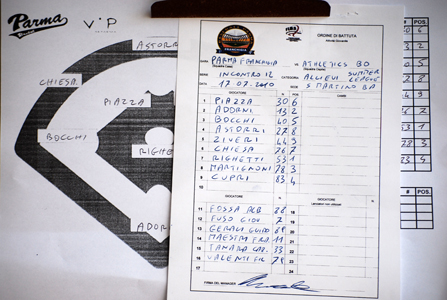 Parma
V.P
ASTORRI
CHIESA
PIAZZA
BOCCHI
RIGHE
ADOR
POS.
ORDINE DI BATTUTA
PARMA FRANCHIGIA
ATHLETICS BO
INCONTRO 12
CATEGORIA ALLIEVI SUMMER LEAGUE
17.07.2010
S MARTINO BA
GIOCATORE
CAMBI
1 PIAZZA 30 6
2 ADORNI 13 2
3 BOCCHI 40 5
4 ASTORRI 27 8
5 ZIVERI 44 9
6 CHIESA 76 7
7 RIGHETTI 53 1
8 MARTIGNONI 78 3
9 CUPRI 83 4
10
GIOCATORE
GIOCATORE
11 FOSSA ROB 88
12 FUSO GIOV 7
13 GERALI GUIDO 61
14 MAESTRI FRA. 11
15 TANARA GAB. 33
16 VALENTI FIL 71
17
18
19
20
21
22
23
24
FIRMA DEL MANAGER